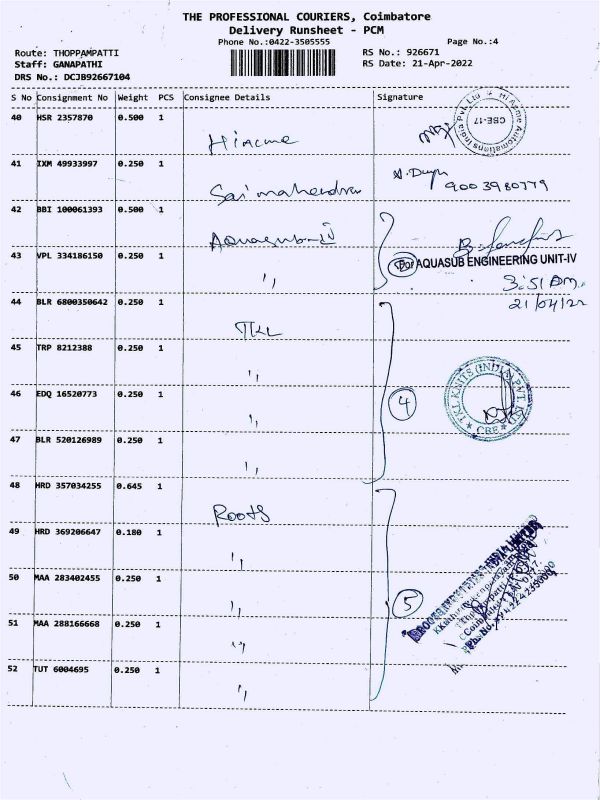 THE PROFESSIONAL COURIERS, Coimbatore
Delivery Runsheet - PCM
Phone No.:0422-3505555 Page No.:4
Route: THOPPAMPATTI RS No.: 926671
Staff: GANAPATHI RS Date: 21-Apr-2022
DRS No.: DCJB92667104
S No Consignment No Weight PCS Consignee Details Signature
40 HSR 2357870 0.500 1 Hiacme
Hi Acme Automations India Pvt. Ltd CBE-17
41 IXM 49933997 0.250 1 Sai mahendra
9003980779
42 BBI 100061393 0.500 1 Aquasub-IV
43 VPL 334186150 0.250 1 ''
For AQUASUB ENGINEERING UNIT-IV
3:51 PM
21/04/22
44 BLR 6800350642 0.250 1 TKL
45 TRP 8212388 0.250 1 ''
46 EDQ 16520773 0.250 1 ''
4
TKL KNITS (INDIA) PVT. CBE
47 BLR 520126989 0.250 1 ''
48 HRD 357034255 0.645 1 Roots
49 HRD 369206647 0.180 1 ''
50 MAA 283402455 0.250 1 ''
5
51 MAA 288166668 0.250 1 ''
52 TUT 6004695 0.250 1 ''